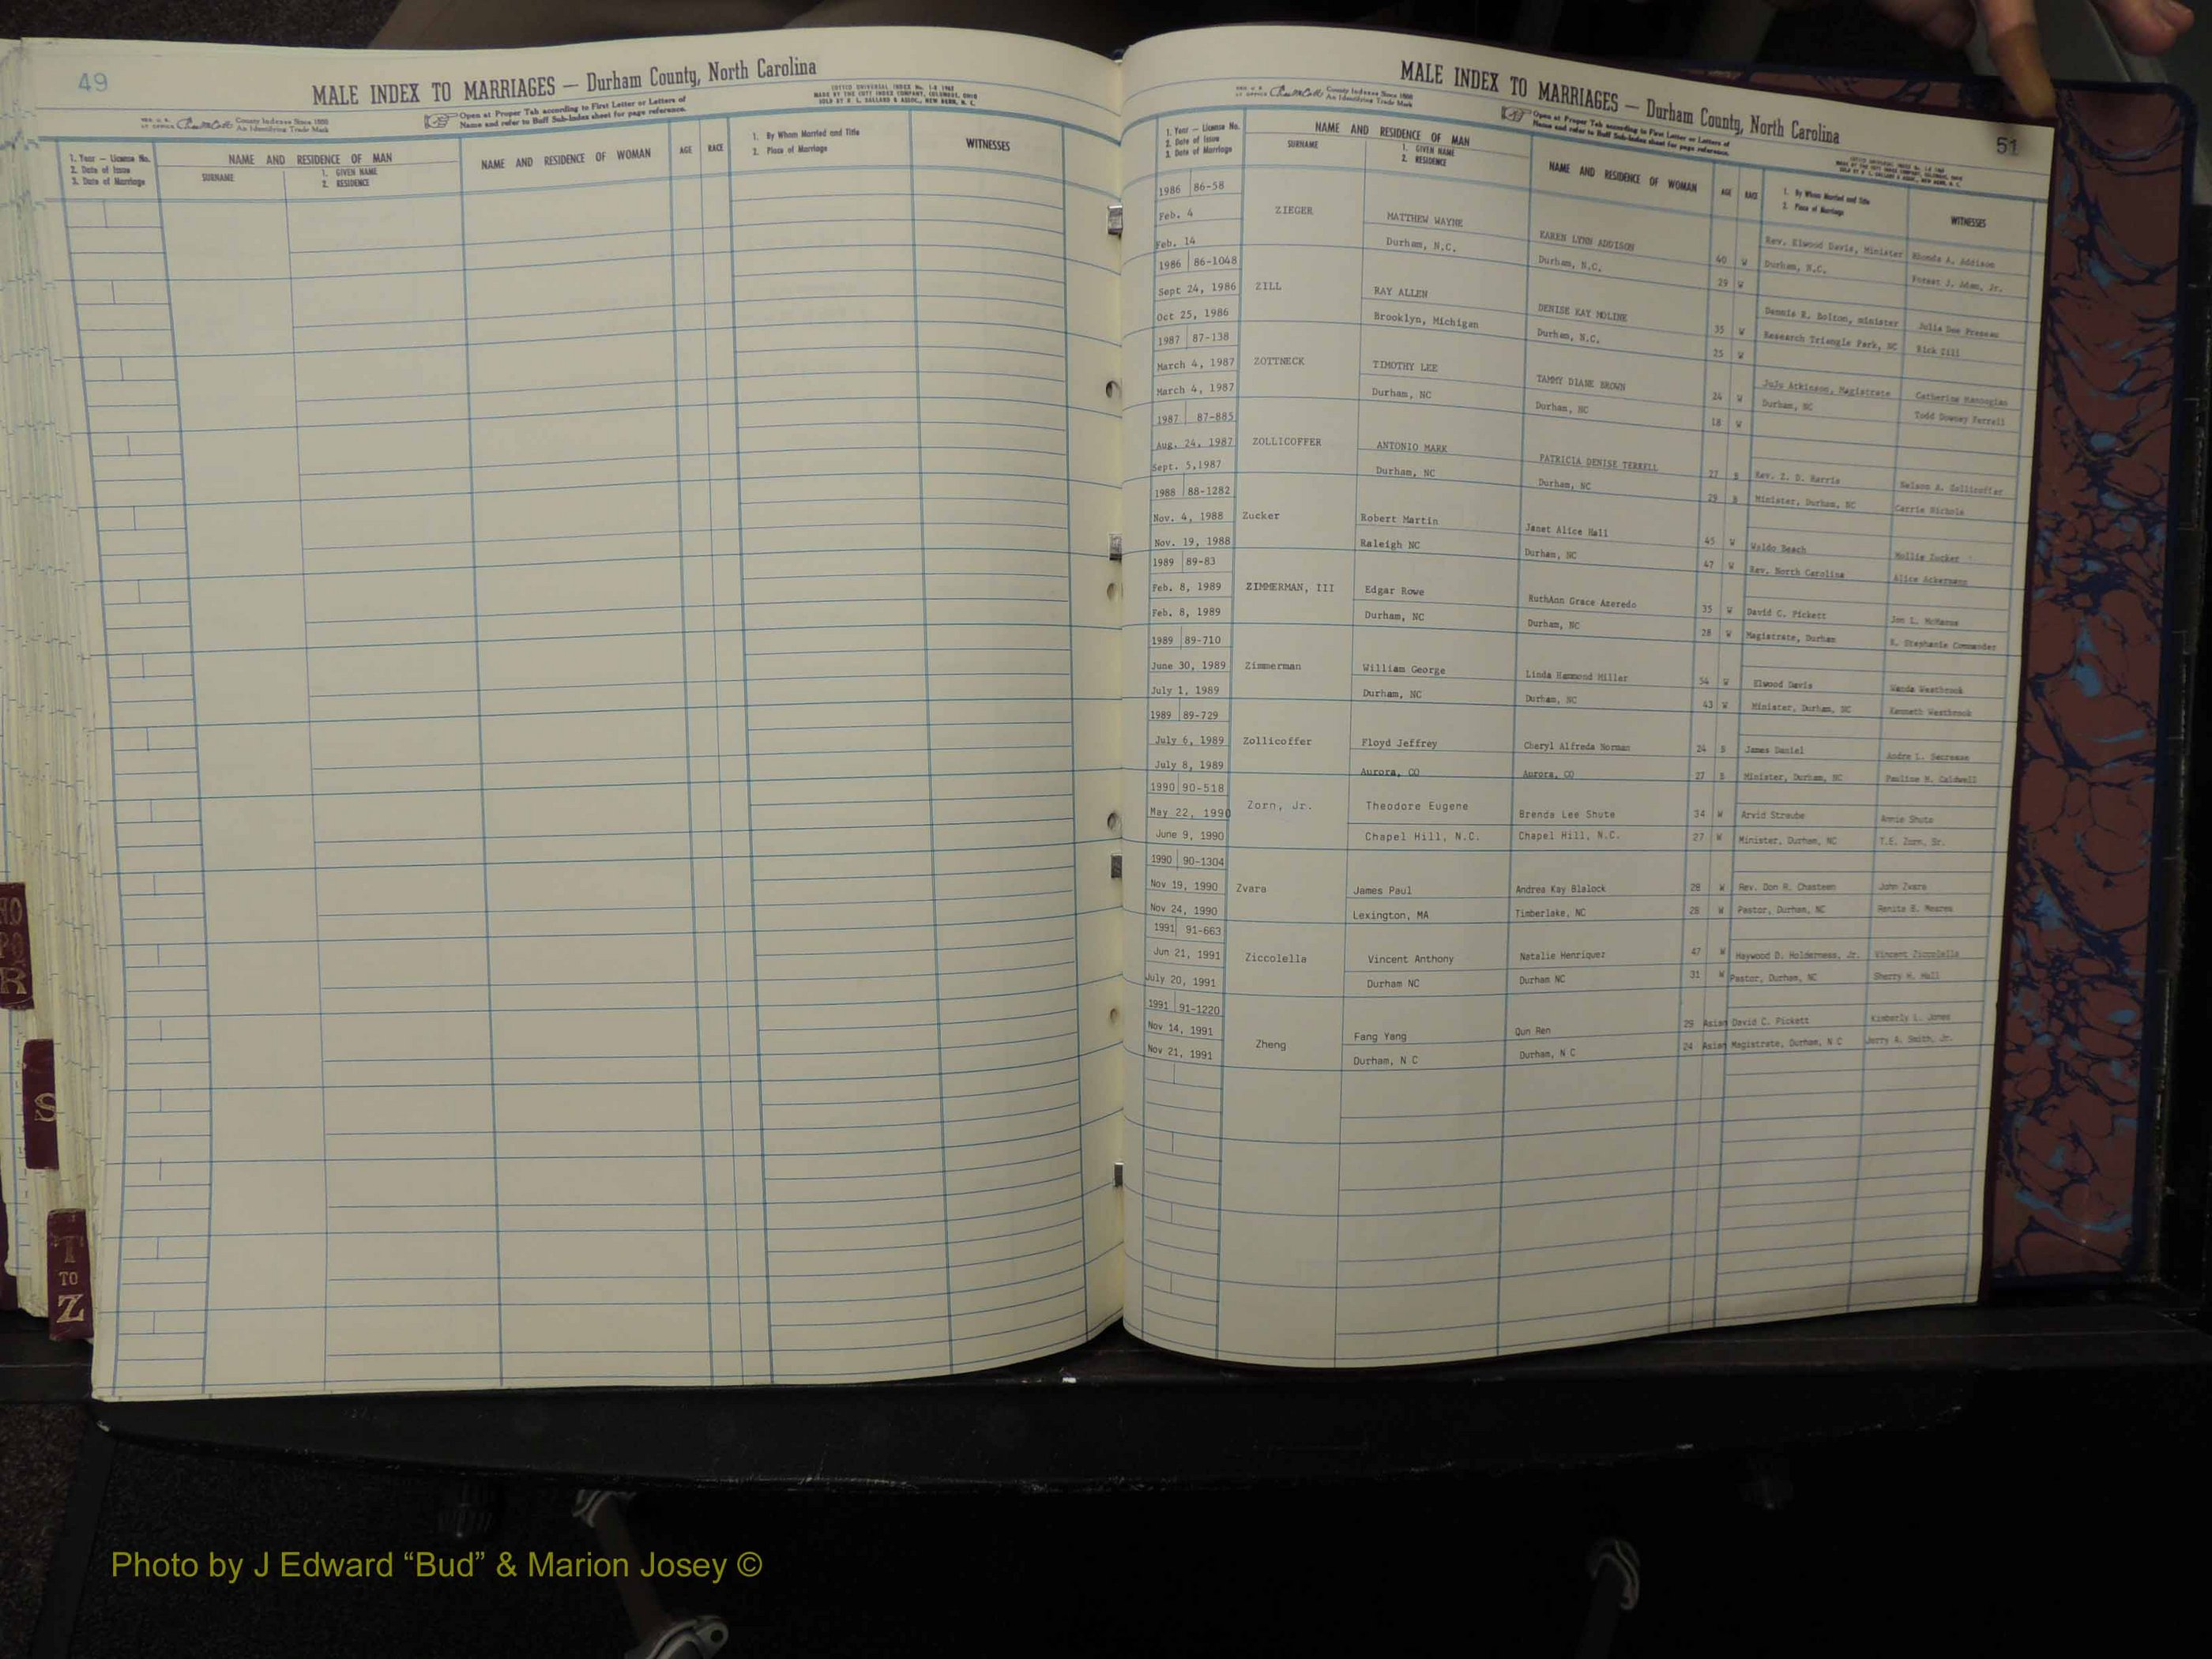 49
MALE INDEX TO MARRIAGES — Durham County, North Carolina
County Indexes Since 1888
An Identifying Trade Mark
Open at Proper Tab according to First Letter or Letters of
Name and refer to Buff Sub-Index sheet for page reference.
1. Year — License No.
2. Date of Issue
3. Date of Marriage
NAME AND RESIDENCE OF MAN
SURNAME
1. GIVEN NAME
2. RESIDENCE
NAME AND RESIDENCE OF WOMAN
AGE
RACE
1. By Whom Married and Title
2. Place of Marriage
WITNESSES
R
S
T
TO
Z
MALE INDEX TO MARRIAGES — Durham County, North Carolina
51
County Indexes Since 1888
An Identifying Trade Mark
Open at Proper Tab according to First Letter or Letters of
Name and refer to Buff Sub-Index sheet for page reference.
1. Year — License No.
2. Date of Issue
3. Date of Marriage
NAME AND RESIDENCE OF MAN
SURNAME
1. GIVEN NAME
2. RESIDENCE
NAME AND RESIDENCE OF WOMAN
AGE
RACE
1. By Whom Married and Title
2. Place of Marriage
WITNESSES
1986 86-58
Feb. 4 ZIEGER MATTHEW WAYNE KAREN LYNN ADDISON 40 W Rev. Elwood Davis, Minister Rhonda A. Addison
Feb. 14 Durham, N.C. Durham, N.C. 29 W Durham, N.C. Forest J. Jr.
1986 86-1048
Sept 24, 1986 ZILL RAY ALLEN DENISE KAY MOLINE 35 W Dennis R. Bolton, minister Julia Sue
Oct 25, 1986 Brooklyn, Michigan Durham, N.C. 25 W Research Triangle Park, NC Rick Zill
1987 87-138
March 4, 1987 ZOTTNECK TIMOTHY LEE TAMMY DIANE BROWN 24 W JoJo Atkinson, Magistrate Catherine
March 4, 1987 Durham, NC Durham, NC 18 W Durham, NC Todd Downey Ferrell
1987 87-885
Aug. 24, 1987 ZOLLICOFFER ANTONIO MARK PATRICIA DENISE TERRELL 27 B Rev. Z. D. Harris Nelson A. Zollicoffer
Sept. 5,1987 Durham, NC Durham, NC 29 B Minister, Durham, NC Carrie Nichols
1988 88-1282
Nov. 4, 1988 Zucker Robert Martin Janet Alice Hall 45 W Waldo Beach Mollie Zucker
Nov. 19, 1988 Raleigh NC Durham, NC 47 W Rev. North Carolina Alice Ackermann
1989 89-83
Feb. 8, 1989 ZIMMERMAN, III Edgar Rowe RuthAnn Grace Azeredo 35 W David C. Pickett Jon L. McManus
Feb. 8, 1989 Durham, NC Durham, NC 28 W Magistrate, Durham K. Stephanie Commander
1989 89-710
June 30, 1989 Zimmerman William George Linda Hammond Miller 54 W Elwood Davis Wanda Westbrook
July 1, 1989 Durham, NC Durham, NC 43 W Minister, Durham, NC Kenneth Westbrook
1989 89-729
July 6, 1989 Zollicoffer Floyd Jeffrey Cheryl Alfreda Norman 24 B James Daniel Andre L.
July 8, 1989 Aurora, CO Aurora, CO 27 B Minister, Durham, NC Pauline H. Caldwell
1990 90-518
May 22, 1990 Zorn, Jr. Theodore Eugene Brenda Lee Shute 34 W Arvid Straube Annie Shute
June 9, 1990 Chapel Hill, N.C. Chapel Hill, N.C. 27 W Minister, Durham, NC T.E. Zorn, Sr.
1990 90-1304
Nov 19, 1990 Zvara James Paul Andrea Kay Blalock 28 W Rev. Don R. Chasteen John Zvara
Nov 24, 1990 Lexington, MA Timberlake, NC 28 W Pastor, Durham, NC Renita E. Meares
1991 91-663
Jun 21, 1991 Ziccolella Vincent Anthony Natalie Henriquez 47 W Haywood D. Holderness, Jr. Vincent Ziccolella
July 20, 1991 Durham NC Durham NC 31 W Pastor, Durham, NC Sherry H. Hall
1991 91-1220
Nov 14, 1991 Zheng Fang Yang Qun Ren 29 Asian David C. Pickett Kimberly L. Jones
Nov 21, 1991 Durham, N C Durham, N C 24 Asian Magistrate, Durham, N C Jerry A. Smith, Jr.
Photo by J Edward “Bud” & Marion Josey ©